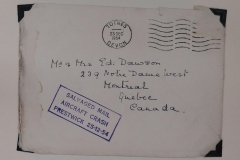 TOTNES
23 DEC
1954
DEVON
Mr & Mrs Ed. Dawson
229 Notre Dame West
Montreal
Quebec
Canada.
SALVAGED MAIL
AIRCRAFT CRASH
PRESTWICK 25-12-54